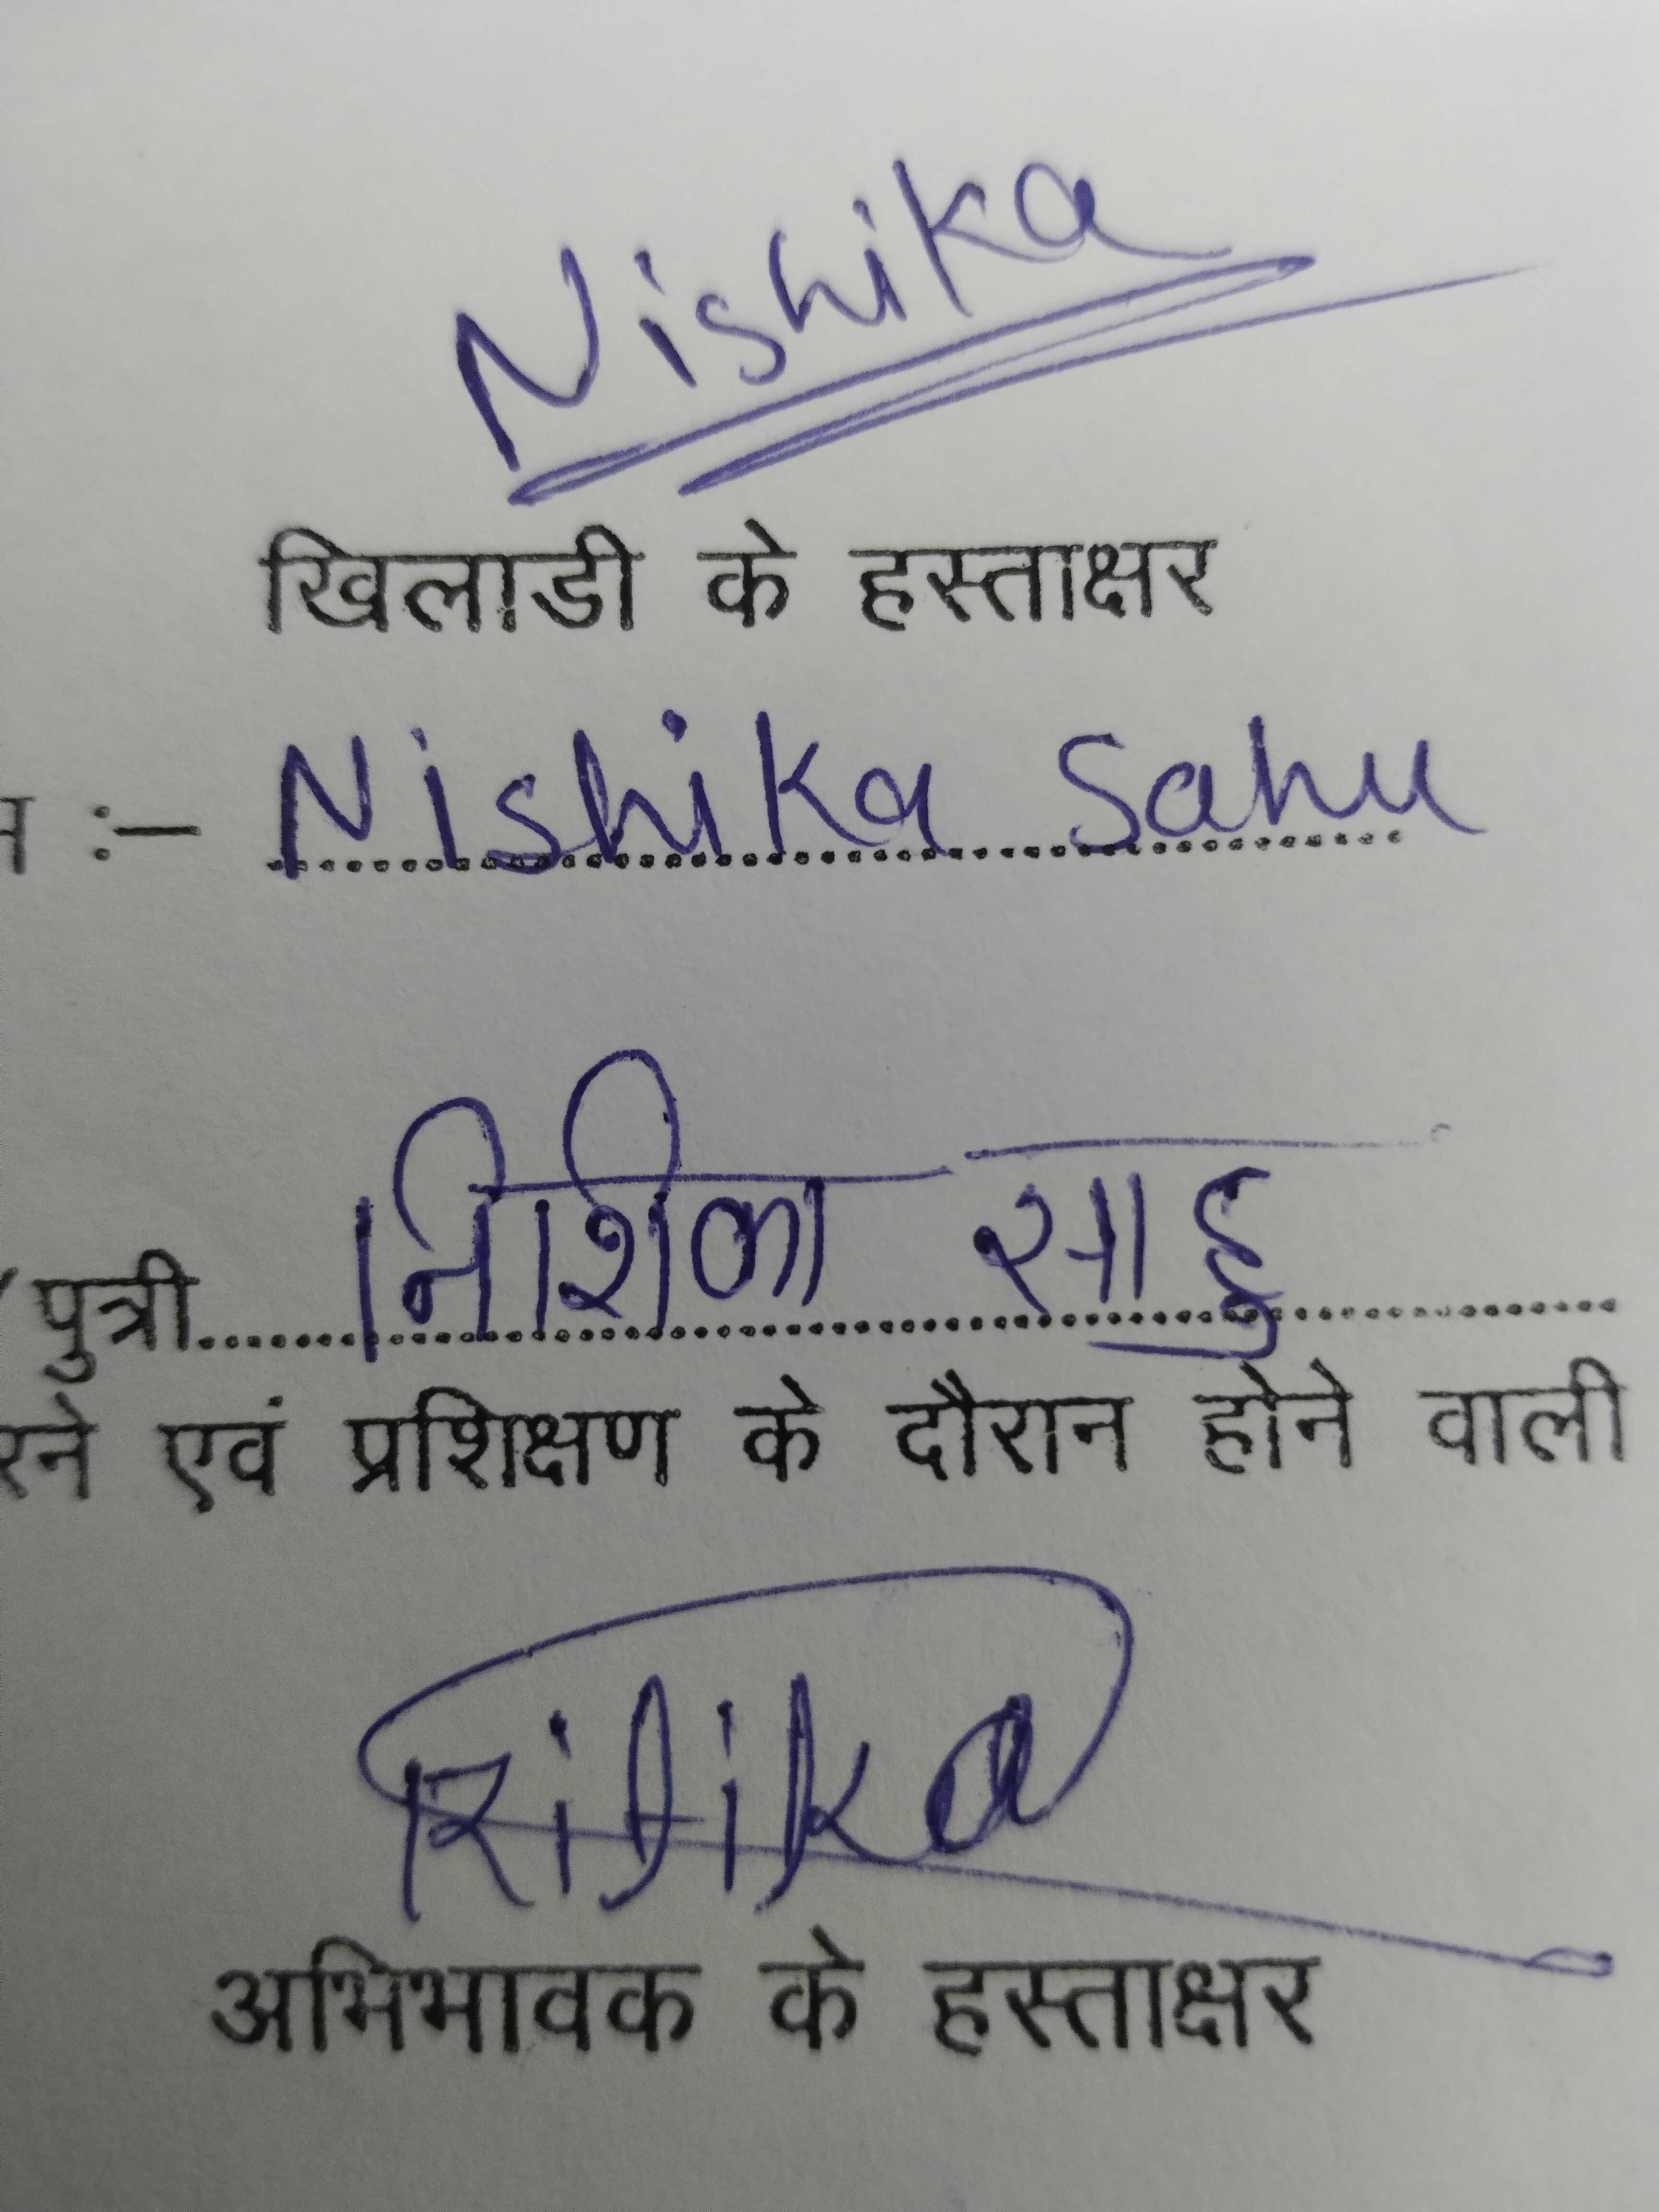 Nishika
खिलाडी के हस्ताक्षर
:– Nishika Sahu
पुत्री निशिका साहु
रने एवं प्रशिक्षण के दौरान होने वाली
Ritika
अभिभावक के हस्ताक्षर